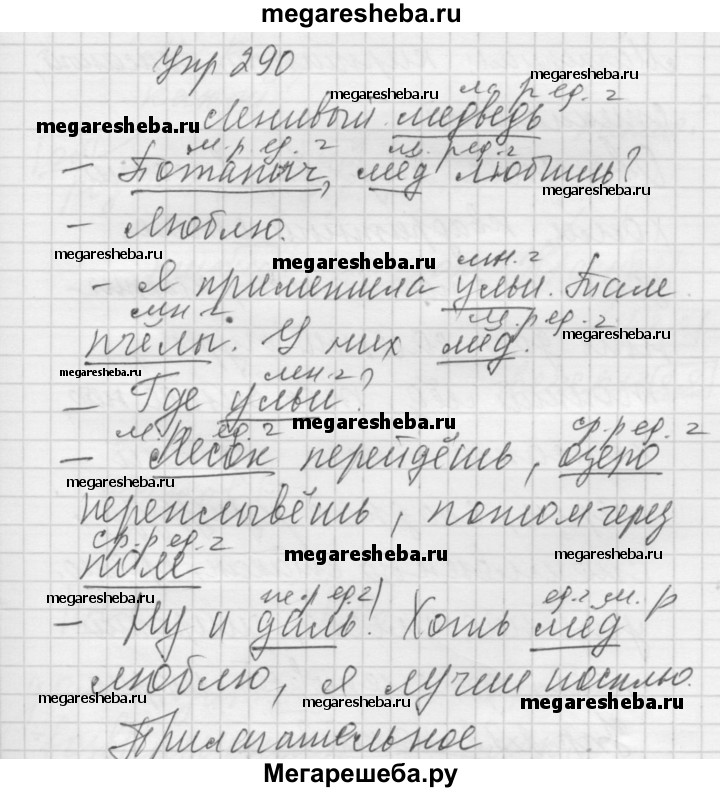 megaresheba.ru
Упр 290
megaresheba.ru
м. р ед. г
megaresheba.ru
megaresheba.ru
Ленивый медведь
м. р ед. г м. р ед. г
- Потапыч, мёд любишь?
megaresheba.ru
- Люблю.
megaresheba.ru
megaresheba.ru
мн. г
- Я приметила ульи. Там
мн г м. р ед. г
megaresheba.ru
пчёлы. У них мёд.
megaresheba.ru
мн. г
- Где ульи?
megaresheba.ru
м. р ед. г ср. р ед. г
- Лесок перейдёшь, озеро
megaresheba.ru
переплывёшь, потом через
ср. р ед. г
megaresheba.ru
megaresheba.ru
поле
megaresheba.ru
ж. р ед. г ед. г м. р
- Ну и даль! Хоть мёд
люблю, я лучше посплю.
megaresheba.ru
megaresheba.ru
megaresheba.ru
Прилагательное
Мегарешеба.ру